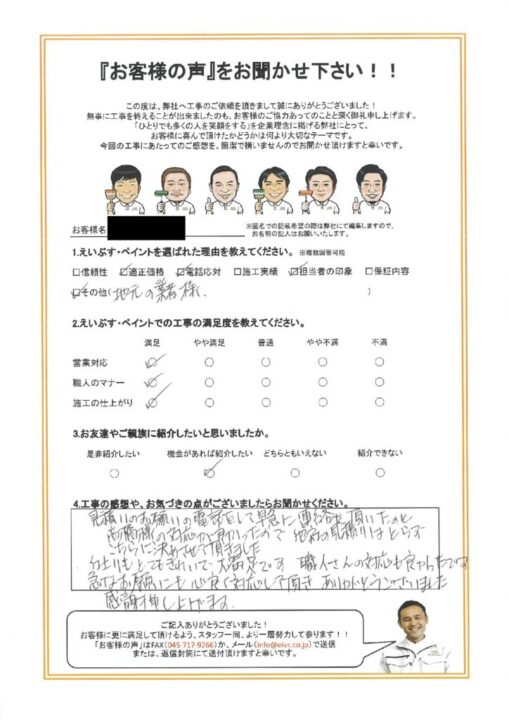 『お客様の声』をお聞かせ下さい！！
この度は、弊社へ工事のご依頼を頂きまして誠にありがとうございました！
無事に工事を終えることが出来ましたのも、お客様のご協力あってのことと深く御礼申し上げます。
「ひとりでも多くの人を笑顔をする」を企業理念に掲げる弊社にとって、
お客様に喜んで頂けたかどうかは何より大切なテーマです。
今回の工事にあたってのご感想を、簡潔で構いませんのでお聞かせ頂けますと幸いです。
お客様名
※匿名での記載希望の際は弊社にて編集しますので、
お名前の記入はお願いいたします。
1.えいぶす・ペイントを選ばれた理由を教えてください。 ※複数回答可能
□信頼性 ☑適正価格 ☑電話応対 □施工実績 ☑担当者の印象 □保証内容
☑その他(地元の業者様、 )
2.えいぶす・ペイントでの工事の満足度を教えてください。
満足 やや満足 普通 やや不満 不満
営業対応
職人のマナー
施工の仕上がり
3.お友達やご親族に紹介したいと思いましたか。
是非紹介したい 機会があれば紹介したい どちらともいえない 紹介できない
4.工事の感想や、お気づきの点がございましたらお聞かせください。
見積りのお願いの電話をして早急に連絡を頂いたのと
様の対応が良かったので 他社の見積りはとらず
こちらに決めさせて頂きました
仕上りもとてもきれいで 大満足です 職人さんの対応も良かったです
急なお願いにも心良く対応して頂き ありがとうございました
感謝申し上げます。
ご記入ありがとうございました！
お客様に更に満足して頂けるよう、スタッフ一同、より一層努力して参ります！！
「お客様の声」はFAX(045-717-9266)か、メール(info@eivs.co.jp)で送信
または、返信封筒にて送付頂けますと幸いです。